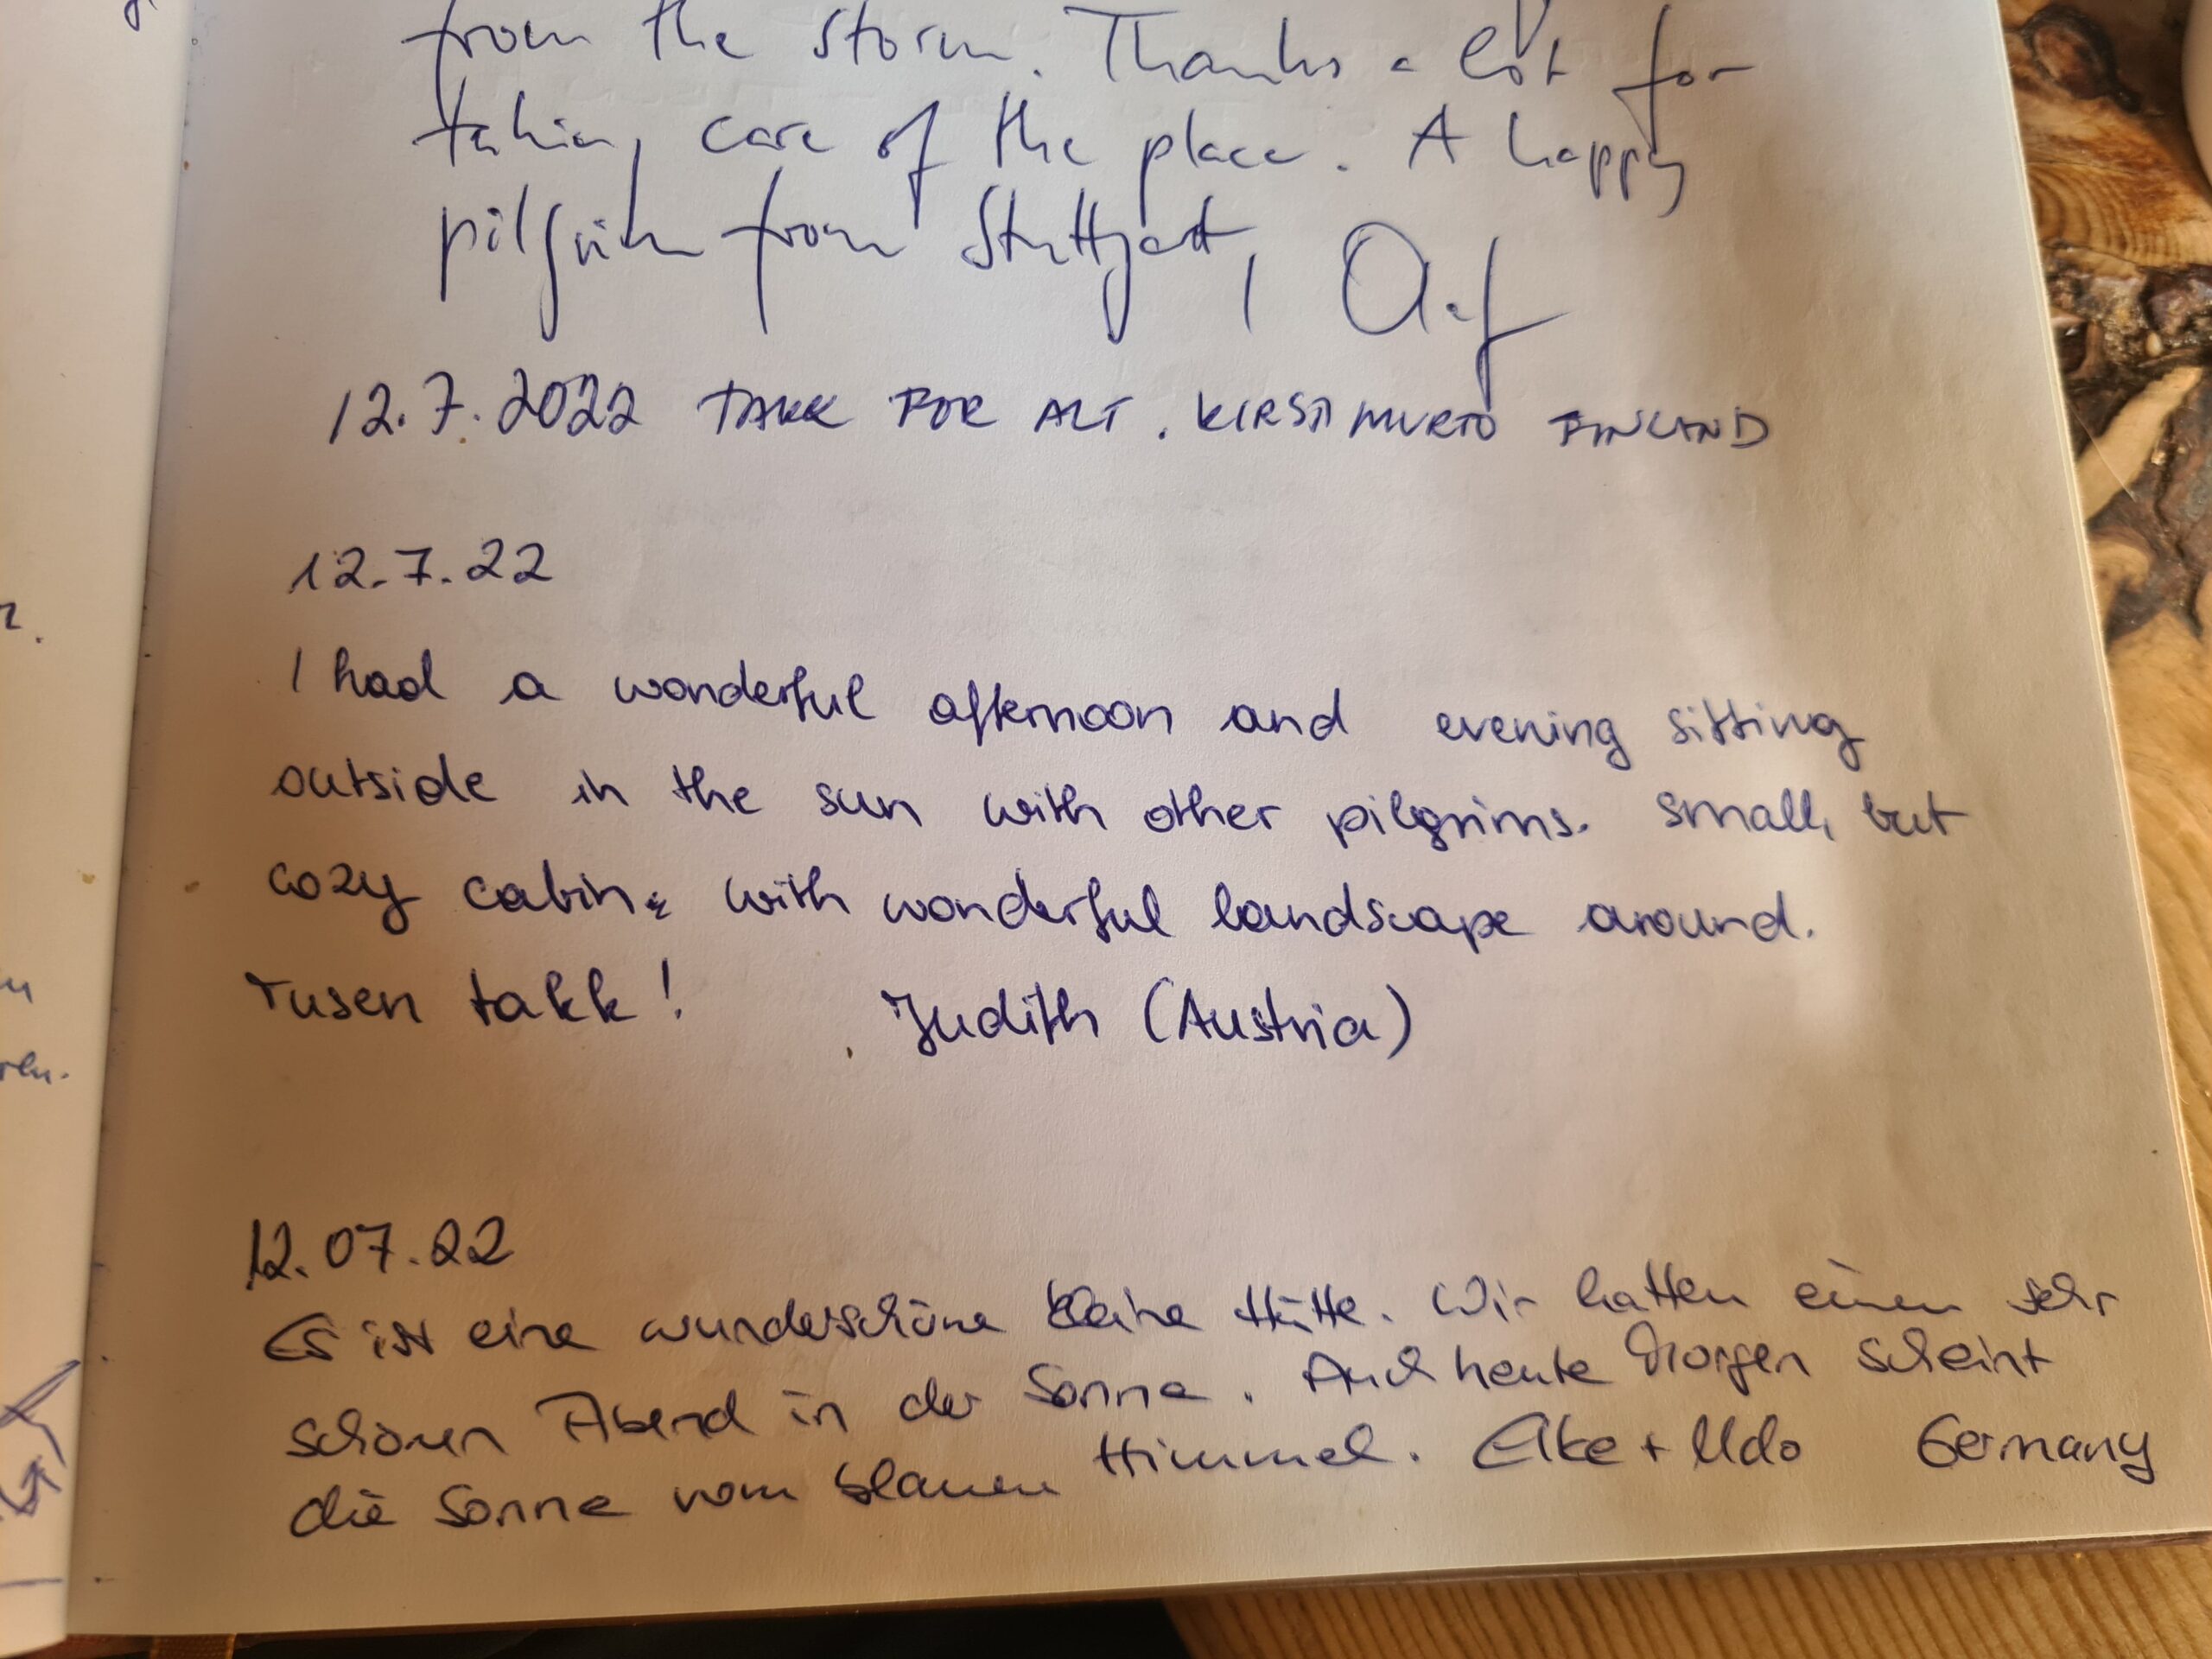 from the storm. Thanks a lot for
taking care of the place. A happy
pilgrim from Stuttgart,
12.7.2022 TAKK FOR ALT. KIRSTI MURTO FINLAND
12.7.22
I had a wonderful afternoon and evening sitting
outside in the sun with other pilgrims. Small, but
cozy cabin with wonderful landscape around.
Tusen takk! Judith (Austria)
12.07.22
Es ist eine wunderschöne kleine Hütte. Wir hatten einen sehr
schönen Abend in der Sonne. Auch heute Morgen scheint
die Sonne vom blauen Himmel. Elke + Udo Germany